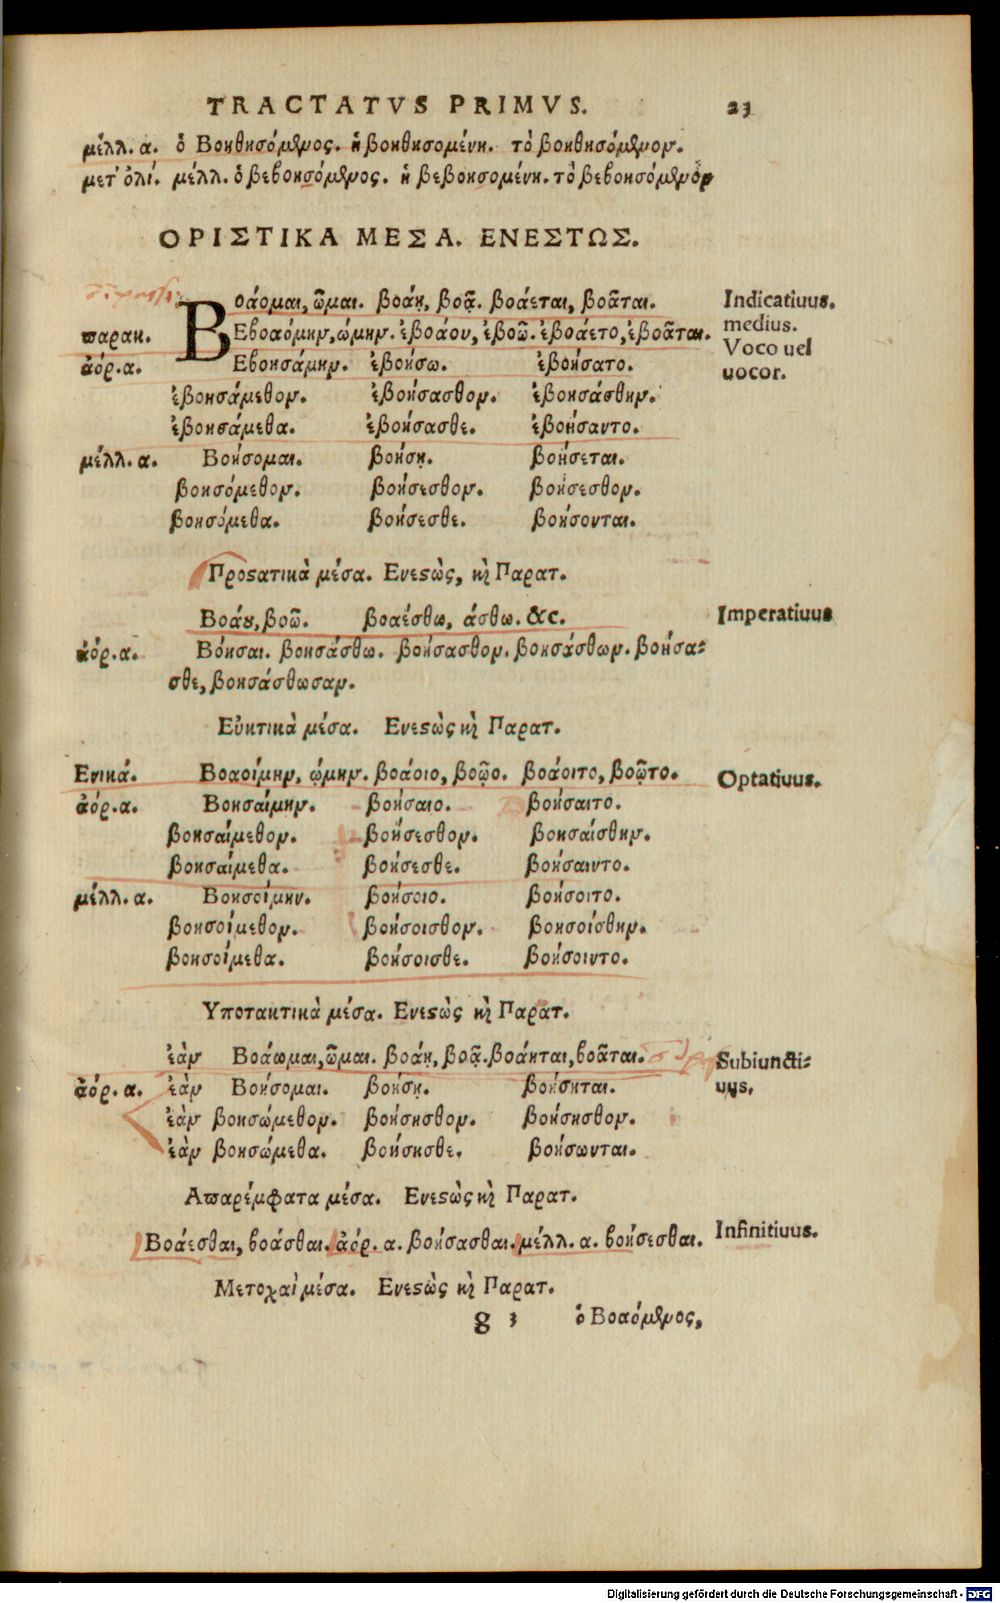 TRACTATVS PRIMVS. 23
μέλλ. α. ὁ Βοηθησόμενος. ἡ βοηθησομένη. τὸ βοηθησόμενον.
μετ' ὀλί. μέλλ. ὁ βεβοησόμενος. ἡ βεβοησομένη. τὸ βεβοησόμενον
ΟΡΙΣΤΙΚΑ ΜΕΣΑ. ΕΝΕΣΤΩΣ.
Βοάομαι, ῶμαι. βοάῃ, βοᾷ. βοάεται, βοᾶται. Indicatiuus.
παρακ. Εβοαόμην, ώμην. ἐβοάου, ἐβοῶ. ἐβοάετο, ἐβοᾶται. medius.
ἀόρ. α. Εβοησάμην. ἐβοήσω. ἐβοήσατο. Voco uel
uocor.
ἐβοησάμεθον. ἐβοήσασθον. ἐβοησάσθην.
ἐβοησάμεθα. ἐβοήσασθε. ἐβοήσαντο.
μέλλ. α. Βοήσομαι. βοήσῃ. βοήσεται.
βοησόμεθον. βοήσεσθον. βοήσεσθον.
βοησόμεθα. βοήσεσθε. βοήσονται.
Προςατικὰ μέσα. Ενεςὼς, καὶ Παρατ.
Βοάου, βοῶ. βοαέσθω, άσθω. &c. Imperatiuus
ἀόρ. α. Βόησαι. βοησάσθω. βοήσασθον. βοησάσθων. βοήσα-
σθε, βοησάσθωσαν.
Εὐκτικὰ μέσα. Ενεςὼς καὶ Παρατ.
Ενικά. Βοαοίμην, ῴμην. βοάοιο, βοῷο. βοάοιτο, βοῷτο. Optatiuus.
ἀόρ. α. Βοησαίμην. βοήσαιο. βοήσαιτο.
βοησαίμεθον. βοήσεσθον. βοησαίσθην.
βοησαίμεθα. βοήσεσθε. βοήσαιντο.
μέλλ. α. Βοησοίμην. βοήσοιο. βοήσοιτο.
βοησοίμεθον. βοήσοισθον. βοησοίσθην.
βοησοίμεθα. βοήσοισθε. βοήσοιντο.
Υποτακτικὰ μέσα. Ενεςὼς καὶ Παρατ.
ἐὰν Βοάωμαι, ῶμαι. βοάῃ, βοᾷ. βοάηται, βοᾶται. Subiuncti-
ἀόρ. α. ἐὰν Βοήσομαι. βοήσῃ. βοήσηται. uus,
ἐὰν βοησώμεθον. βοήσησθον. βοήσησθον.
ἐὰν βοησώμεθα. βοήσησθε. βοήσωνται.
Απαρέμφατα μέσα. Ενεςὼς καὶ Παρατ.
Βοάεσθαι, βοάσθαι. ἀόρ. α. βοήσασθαι. μέλλ. α. βοήσεσθαι. Infinitiuus.
Μετοχαὶ μέσα. Ενεςὼς καὶ Παρατ.
g 3 ὁ Βοαόμενος,
Digitalisierung gefördert durch die Deutsche Forschungsgemeinschaft - DFG